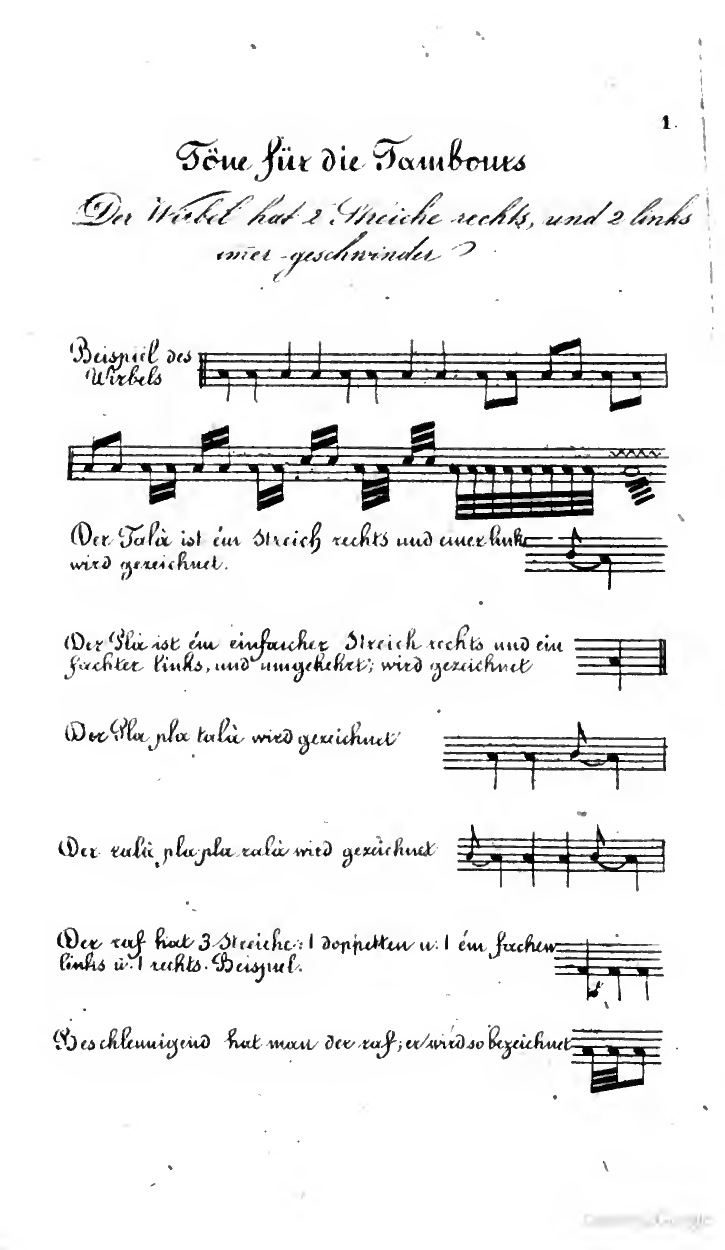 1.
Töne für die Tambours
Der Wirbel hat 2 Streiche rechts, und 2 links
im̅er geschwinder
Beispiel des
Wirbels
Der Talà ist ein Streich rechts und einer links
wird gezeichnet.
Der Pla ist ein einfascher Streich rechts und ein
fachter links, und umgekehrt; wird gezeichnet
Der Pla pla talà wird gezeichnet
Der ralà pla pla ralà wird gezeichnet
Der raf hat 3 Streiche: 1 doppelten u. 1 ein fachen
links u. 1 rechts. Beispiel.
Beschleunigend hat man der raf; er wird so bezeichnet
Google